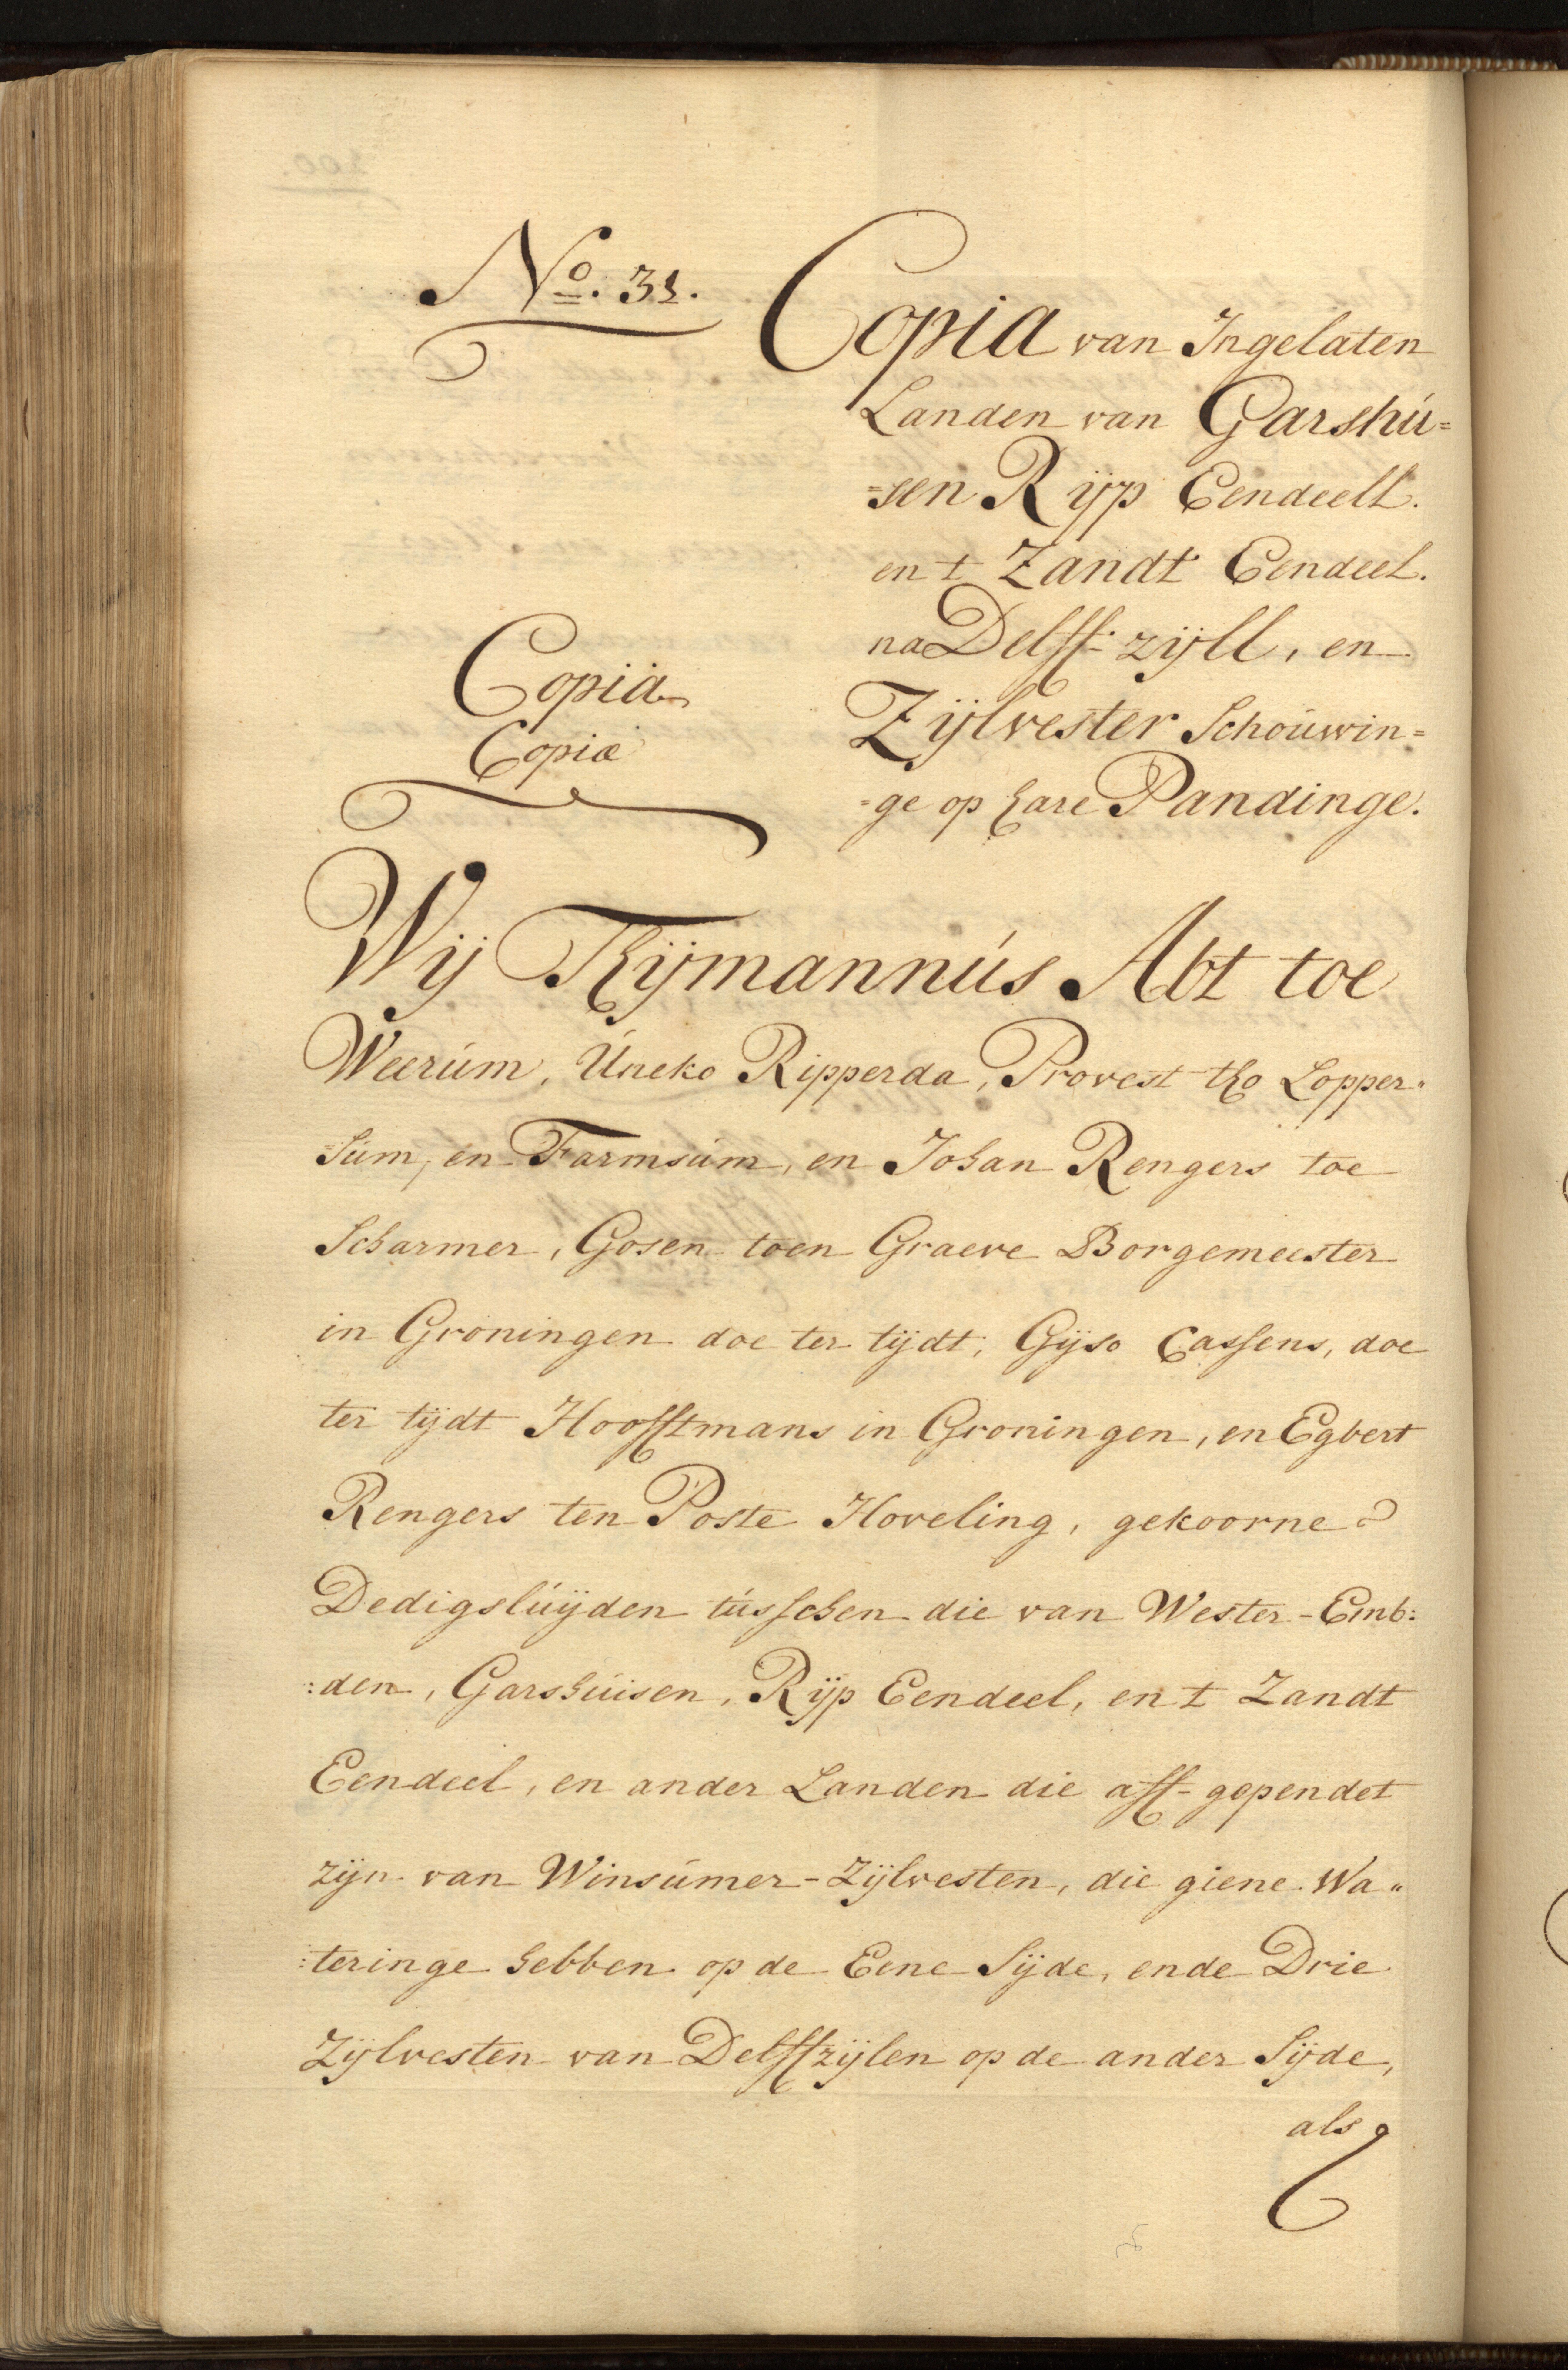 No. 31.
Copia van Ingelaten
Landen van Garshu=
=sen Rijp Eendeell.
en t Zandt Eendeel.
na Delff-zijll, en
Zijlvester Schouwin=
=ge op hare Pandinge.
Copia
Copiæ
Wij Thijmannus Abt toe
Weerum, Uneko Ripperda, Provest tho Lopper"
=sum, en Farmsum, en Johan Rengers toe
Scharmer, Gosen toen Graeve Borgemeester
in Groningen doe ter tijdt, Gijso Cassens, doe
ter tijdt Hoofftmans in Groningen, en Egbert
Rengers ten Poste Hoveling, gekoorne
Dedigsluijden tusschen die van Wester-Emb:
:den, Garshuisen, Rijp Eendeel, en t Zandt
Eendeel, en ander Landen die aff-gependet
zijn van Winsumer-Zijlvesten, die giene Wa"
:teringe hebben op de Eene Sijde, ende Drie
Zijlvesten van Delffzijlen op de ander Sijde,
als